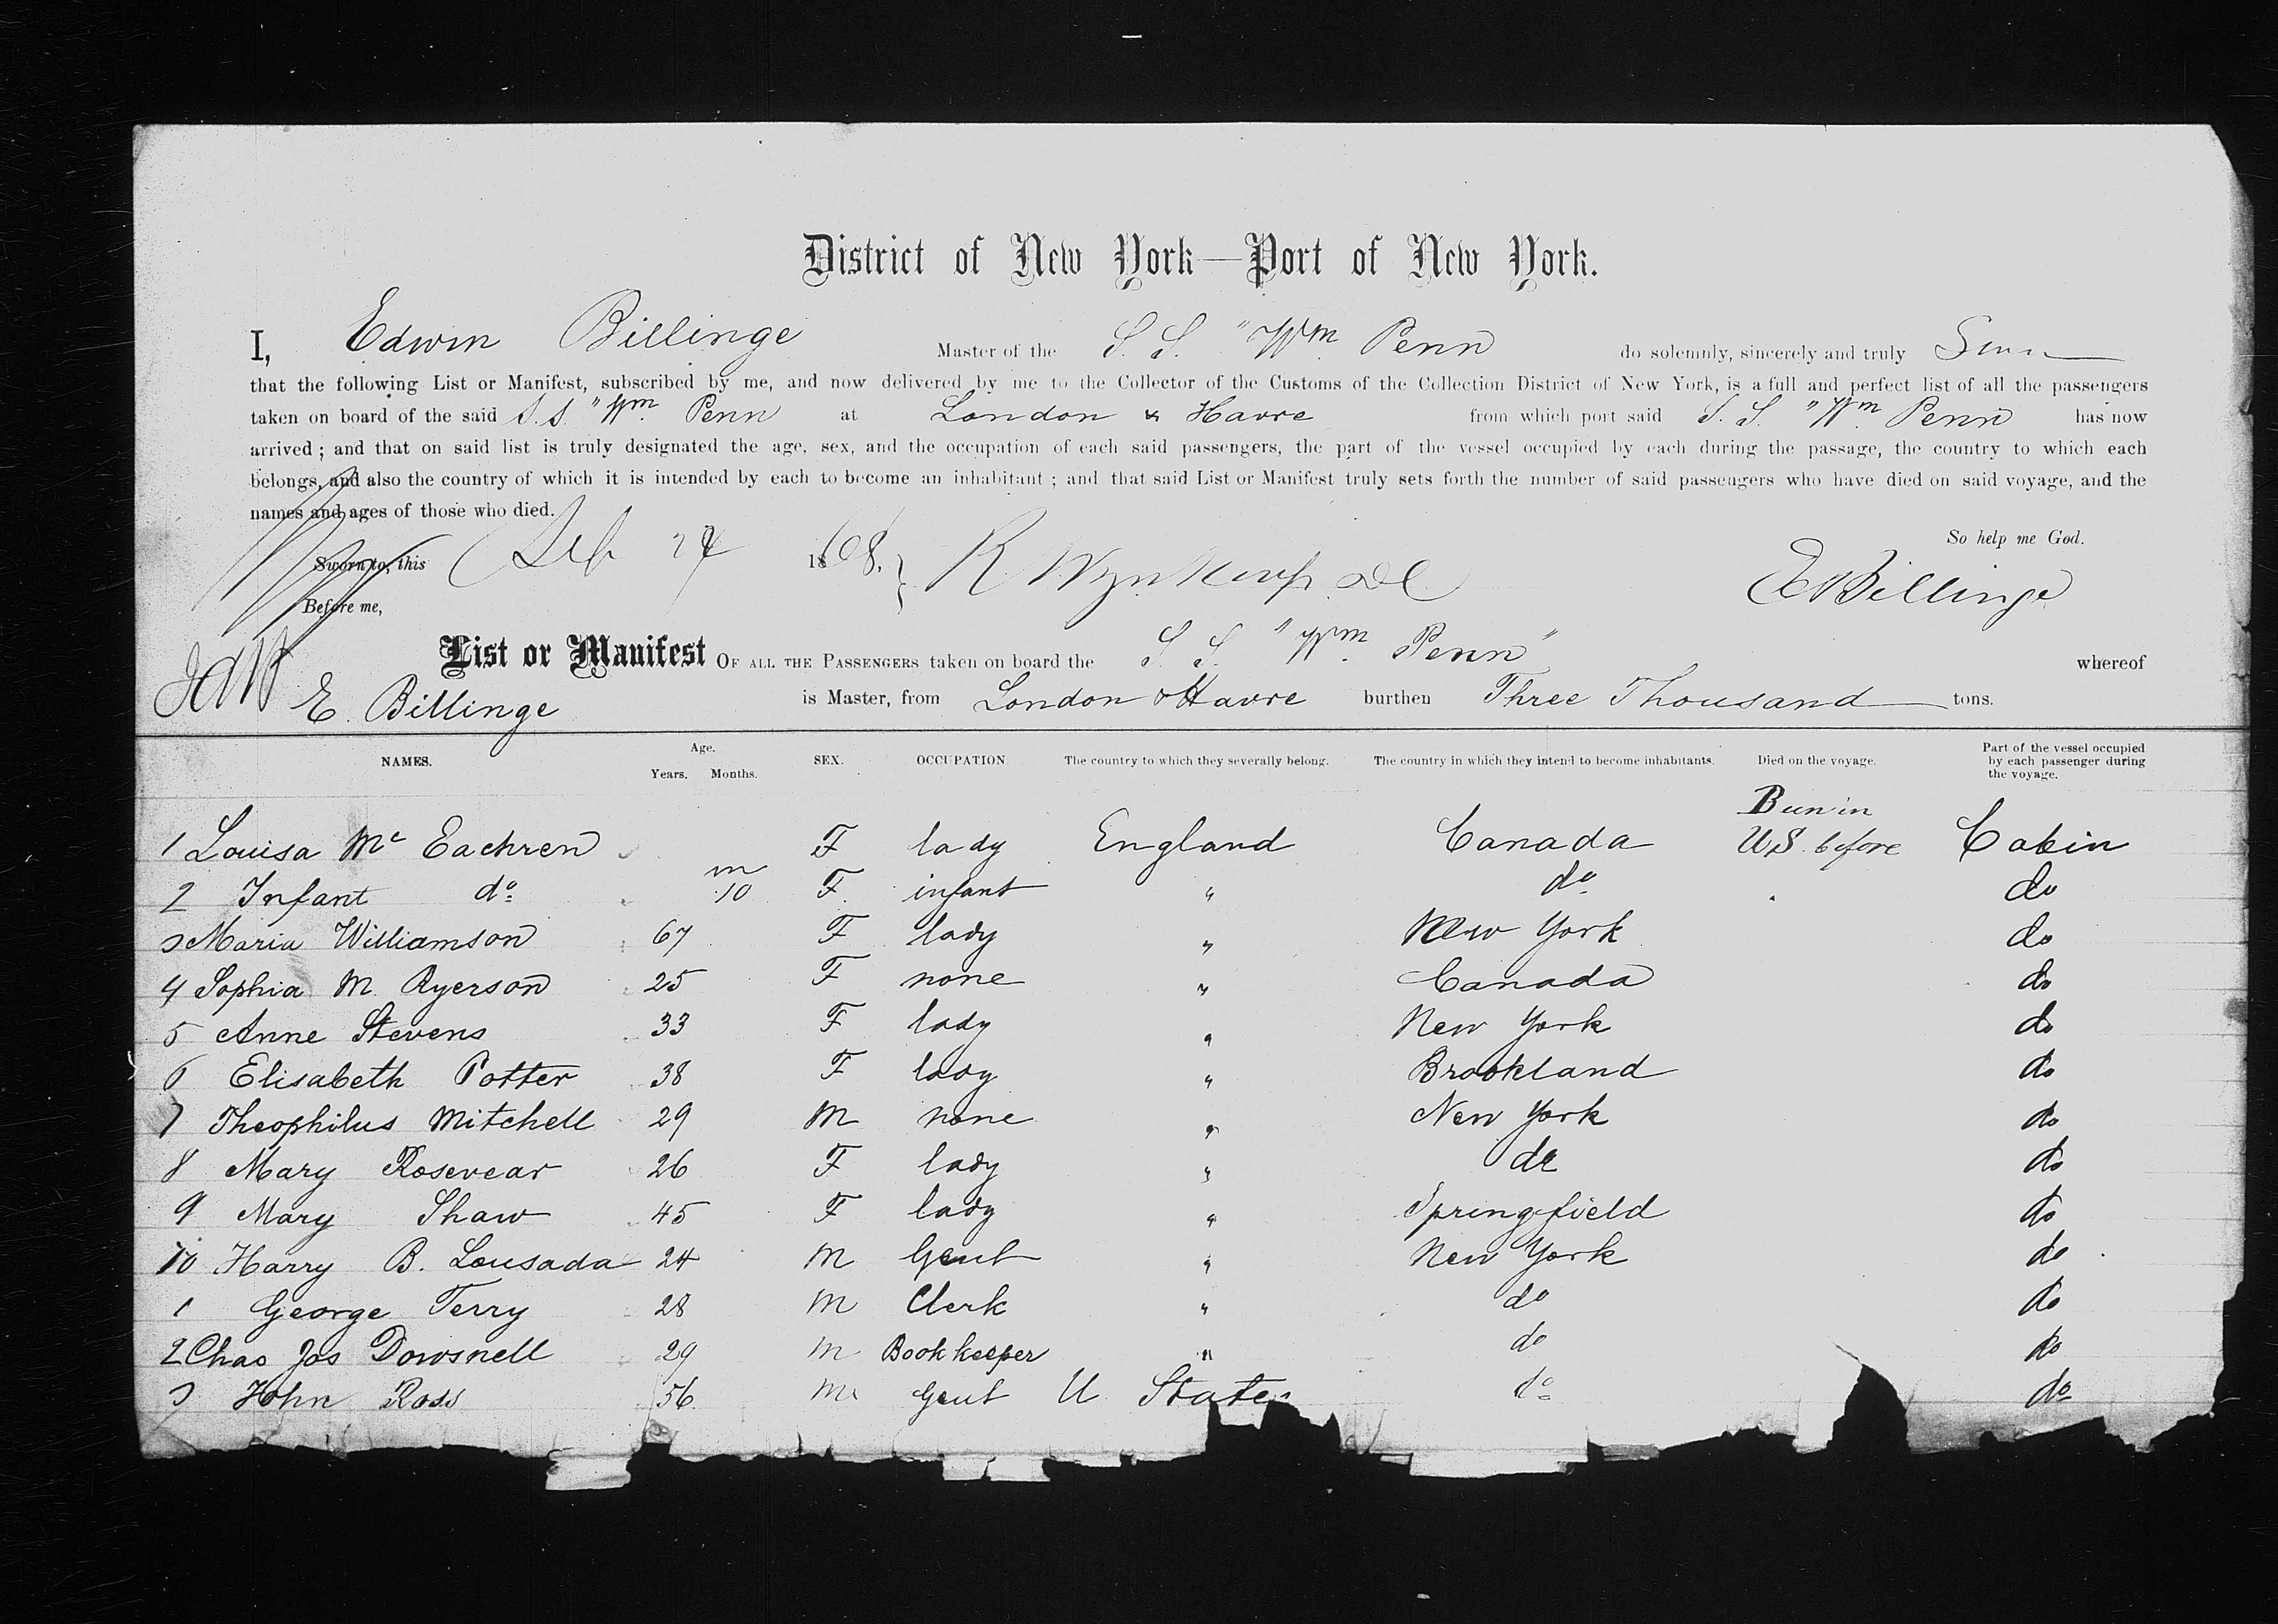 District of New York—Port of New York.
I, Edwin Billinge Master of the S. S. "Wm Penn do solemnly, sincerely and truly
that the following List or Manifest, subscribed by me, and now delivered by me to the Collector of the Customs of the Collection District of New York, is a full and perfect list of all the passengers
taken on board of the said S. S. "Wm Penn at London & Havre from which port said S. S. "Wm Penn has now
arrived ; and that on said list is truly designated the age, sex, and the occupation of each said passengers, the part of the vessel occupied by each during the passage, the country to which each
belongs, and also the country of which it is intended by each to become an inhabitant ; and that said List or Manifest truly sets forth the number of said passengers who have died on said voyage, and the
names and ages of those who died.
So help me God.
Sworn to, this Feb 1868. E Billinge
Before me,
List or Manifest OF ALL THE PASSENGERS taken on board the S. S. "Wm Penn" whereof
E. Billinge is Master, from London & Havre burthen Three Thousand tons.
NAMES. Age. Years. Months. SEX. OCCUPATION. The country to which they severally belong. The country in which they intend to become inhabitants. Died on the voyage. Part of the vessel occupied by each passenger during the voyage.
Been in
1 Louisa Mc Eachren F lady England Canada U.S. before Cabin
2 Infant do m 10 F. infant " do do
3 Maria Williamson 67 F lady " New York do
4 Sophia M Ryerson 25 F none " Canada do
5 Anne Stevens 33 F lady " New York do
6 Elisabeth Potter 38 F lady " Brookland do
7 Theophilus Mitchell 29 M none " New York do
8 Mary Rosevear 26 F lady " do do
9 Mary Shaw 45 F lady " Springfield do
10 Harry B. Lousada 24 M Gent " New York do
1 George Terry 28 M Clerk " do do
2 Chas Jos Dowsnell 29 M Book keeper " do do
3 John Ross 56 M Gent U States do do